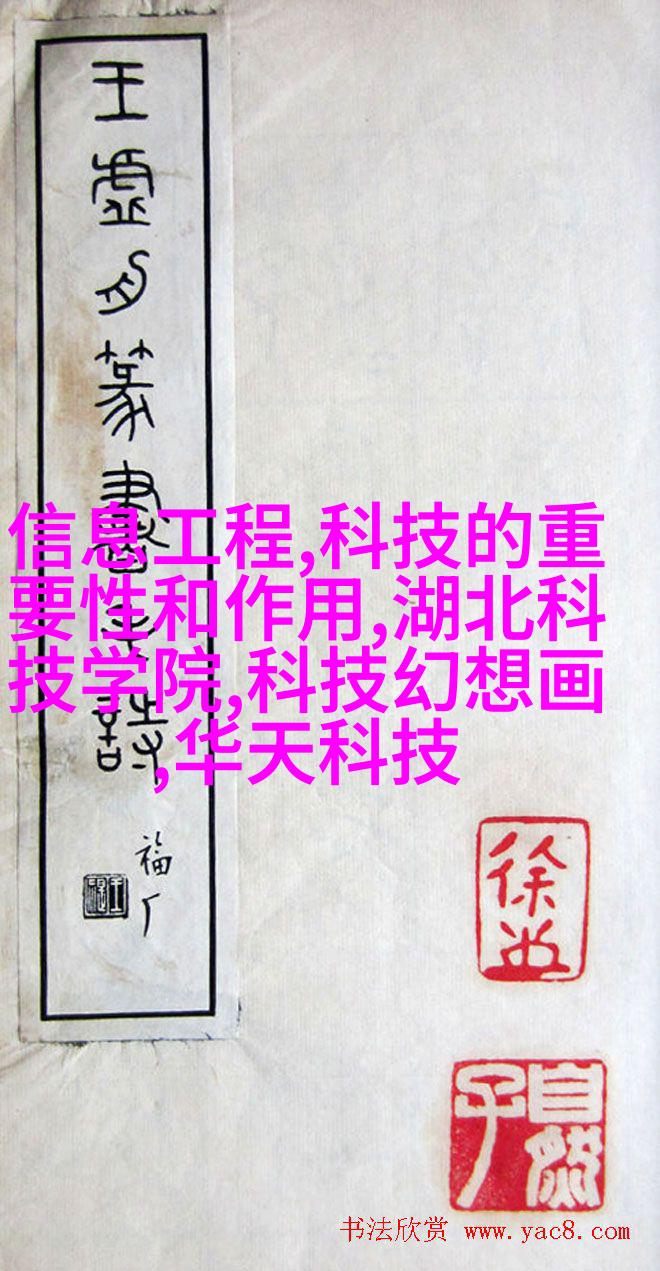 王虛舟篆書詩
福厂
信息工程,科技的重
要性和作用,湖北科
技学院,科技幻想画
,华天科技
徐
自然子
书法欣赏 www.yac8.com